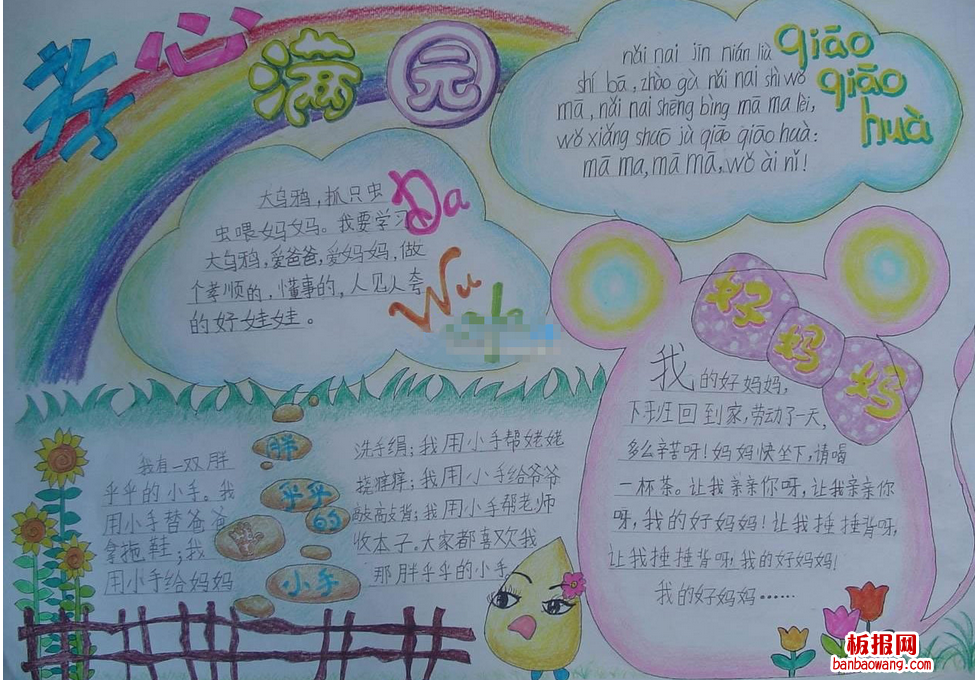 孝心满园
qiāo
qiāo
huà
nǎi nai jīn nián liù
shí bā, zhào gù nǎi nai shì wǒ
mā, nǎi nai shēng bìng mā ma lèi,
wǒ xiǎng shuō jù qiāo qiāo huà:
mā ma, mā mā, wǒ ài nǐ!
Da
Wu
大乌鸦，抓只虫
虫喂妈妈。我要学习
大乌鸦，爱爸爸，爱妈妈，做
个孝顺的，懂事的，人见人夸
的好娃娃。
好妈妈
我的好妈妈，
下班回到家，劳动了一天，
多么辛苦呀！妈妈快坐下，请喝
一杯茶。让我亲亲你呀，让我亲亲你
呀，我的好妈妈！让我捶捶背呀，
让我捶捶背呀，我的好妈妈！
我的好妈妈……
胖
乎乎
的
小手
我有一双胖
乎乎的小手。我
用小手替爸爸
拿拖鞋；我
用小手给妈妈
洗手绢；我用小手帮姥姥
挠痒痒；我用小手给爷爷
敲敲背；我用小手帮老师
收本子。大家都喜欢我
那胖乎乎的小手
板报网
banbaowang.com